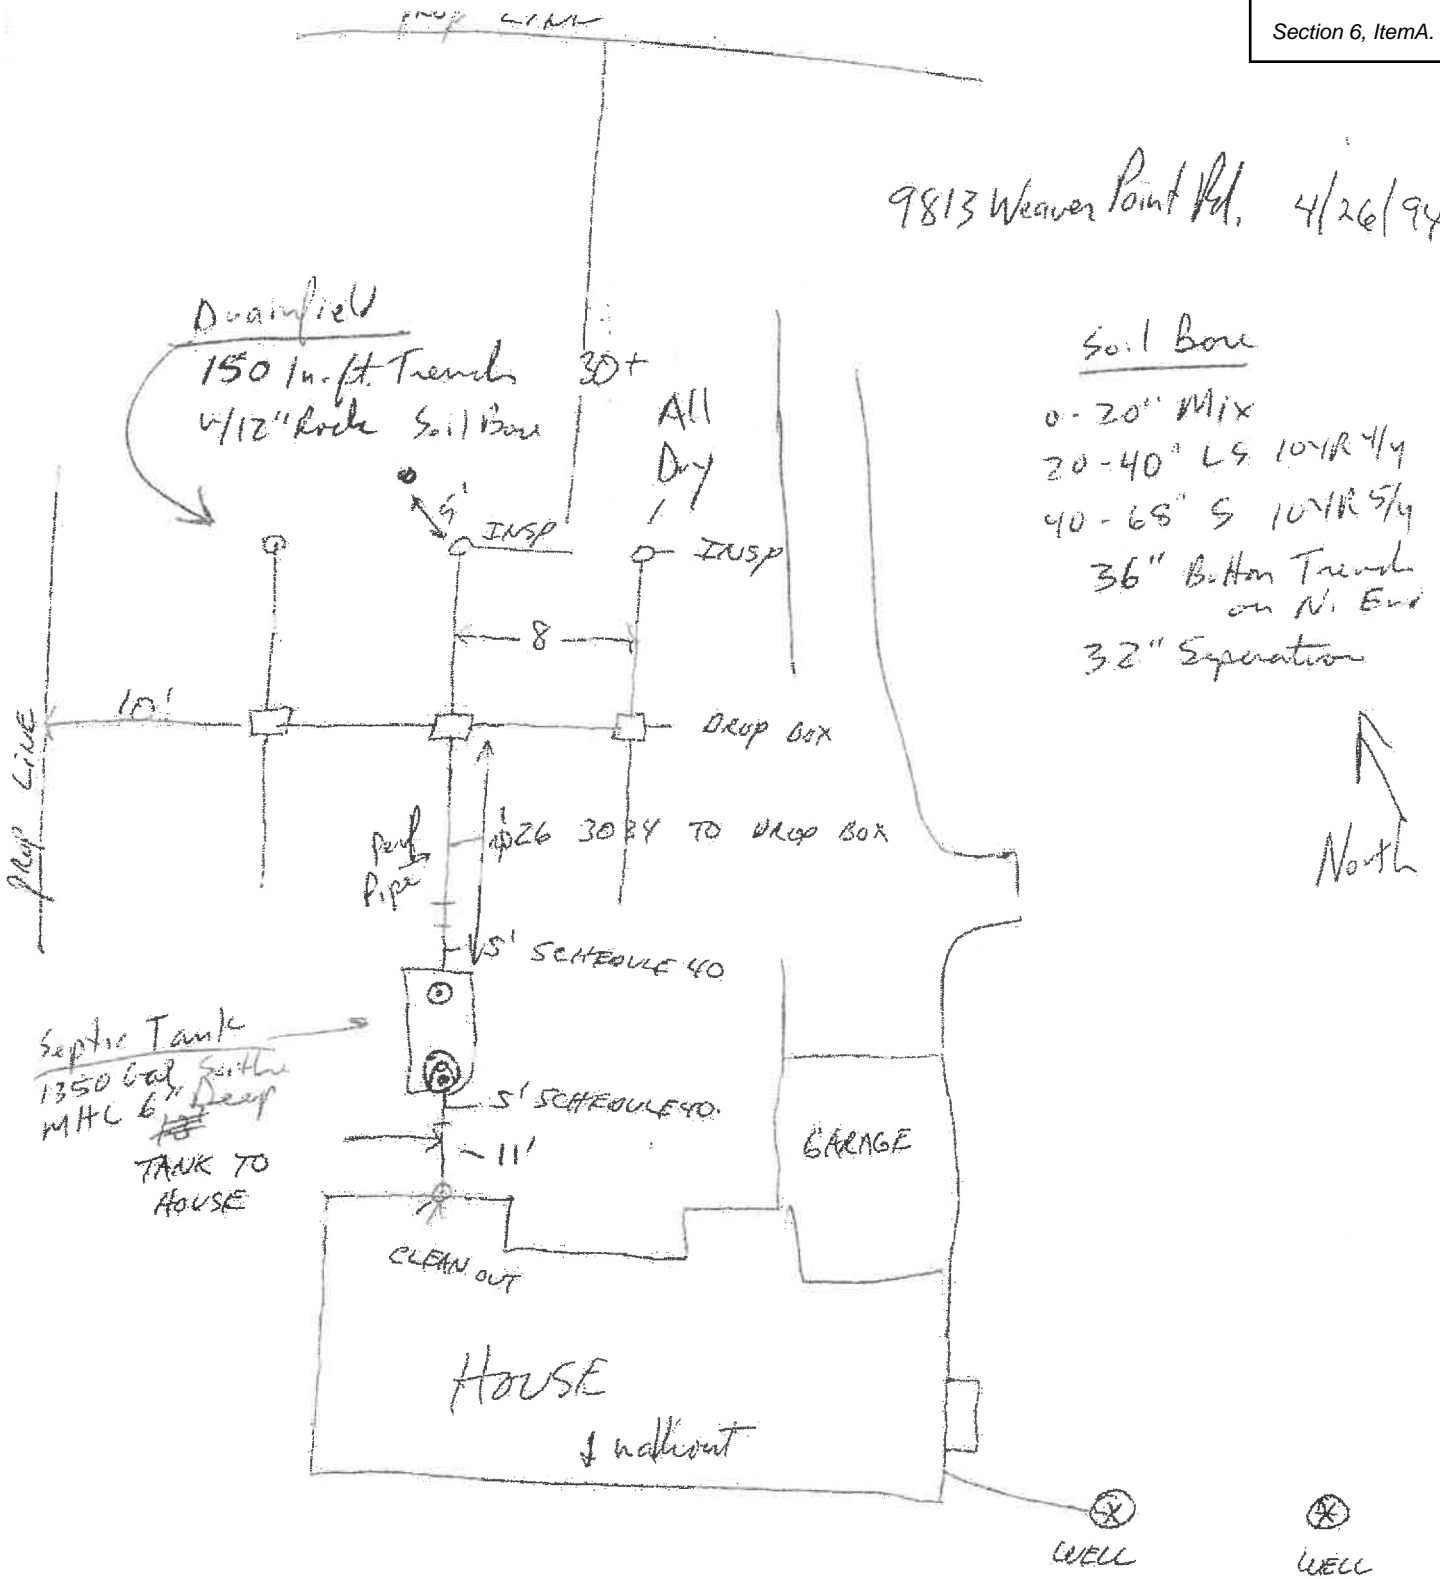 PROP LINE
Section 6, ItemA.
9813 Weaver Point Rd. 4/26/94
Drainfield
150 ln.ft. Trench
w/12" Rock
Soil Bore
30+
All
Dry
5'
INSP
INSP
Soil Bore
0-20" Mix
20-40" LS 10YR 4/4
40-68" S 10YR 5/4
36" Bottom Trench
on N. End
32" Seperation
8
10'
PROP LINE
DROP BOX
Perf
Pipe
26 3034 TO DROP BOX
North
5' SCHEDULE 40
Septic Tank
1350 Gal
MHC 6" Deep
5' SCHEDULE 40.
11'
TANK TO
HOUSE
GARAGE
CLEAN OUT
HOUSE
walkout
WELL
WELL